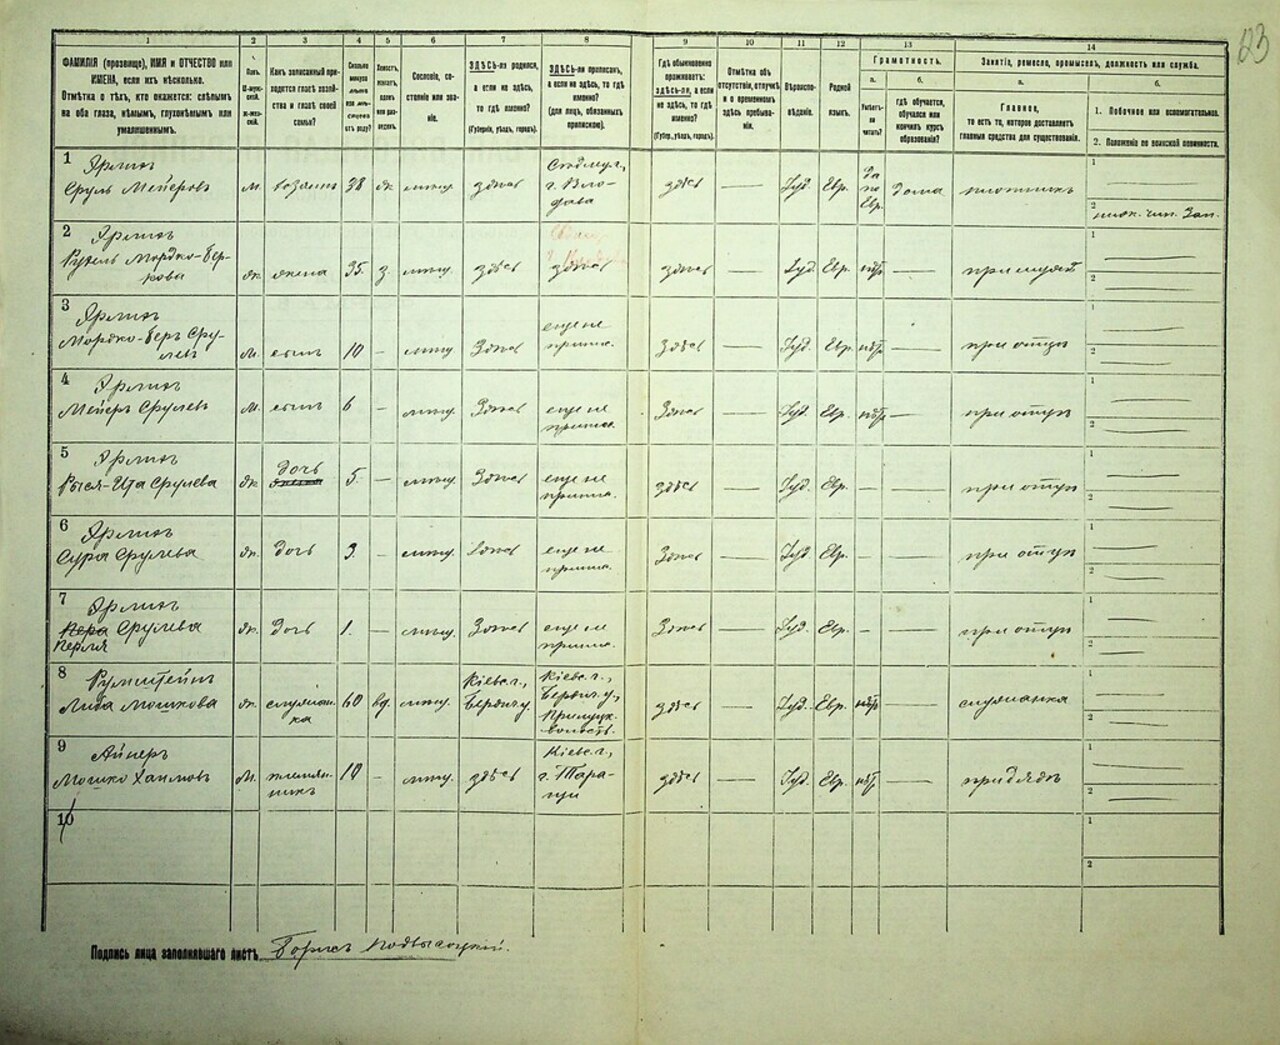 23
1
2
3
4
5
6
7
8
9
10
11
12
13
14
ФАМИЛІЯ (прозвище), ИМЯ и ОТЧЕСТВО или
ИМЕНА, если ихъ нѣсколько.
Отмѣтка о тѣхъ, кто окажется: слѣпымъ
на оба глаза, нѣмымъ, глухонѣмымъ или
умалишеннымъ.
Полъ.
М-муж-
ской.
Ж-жен-
скій.
Какъ записанный при-
ходится главѣ хозяй-
ства и главѣ своей
семьи?
Сколько
минуло
лѣтъ
отъ роду?
Холостъ,
женатъ,
вдовъ
или раз-
веденъ.
Сословіе, со-
стояніе или зва-
ніе.
ЗДѢСЬ-ли родился,
а если не здѣсь,
то гдѣ именно?
(Губернія, уѣздъ, городъ).
ЗДѢСЬ-ли приписанъ,
а если не здѣсь, то гдѣ
именно?
(для лицъ, обязанных
припискою).
Гдѣ обыкновенно
проживаетъ:
здѣсь-ли, а если
не здѣсь, то гдѣ
именно?
(Губер., уѣздъ, городъ).
Отмѣтка объ
отсутствіи, отлучкѣ
и о временномъ
здѣсь пребыва-
ніи.
Вѣроиспо-
вѣданіе.
Родной
языкъ.
Грамотность.
а.
Умѣетъ-
ли
читать?
б.
гдѣ обучается,
обучался или
кончилъ курсъ
образованія?
Занятіе, ремесло, промыселъ, должность или служба.
а.
Главное,
то есть то, которое доставляетъ
главныя средства для существованія.
б.
1. Побочное или вспомогательное.
2. Положеніе по воинской повинности.
1 Ярлик
Сруль Мейеровъ м. хозяинъ 38 ж мѣщ. здѣсь г. Влодава здѣсь — Іуд. Евр. да по Евр. дома плотникъ 1 — 2 ниж. чин. Зап.
2 Ярлик
Мордко-Бер-
кова ж. жена 35. з. мѣщ. здѣсь здѣсь здѣсь — Іуд. Евр. нѣт — при мужѣ 1 — 2 —
3 Ярлик
Мордко-Беръ Сру-
левъ м. сынъ 10 — мѣщ. Здѣсь еще не припис. Здѣсь — Іуд. Евр. нѣт — при отцѣ 1 — 2 —
4 Ярлик
Мейеръ Срулевъ м. сынъ 6 — мѣщ. Здѣсь еще не припис. Здѣсь — Іуд. Евр. нѣт — при отцѣ 1 — 2 —
5 Ярлик
Рыся-Ита Срулева ж. дочь 5. — мѣщ. Здѣсь еще не припис. здѣсь — Іуд. Евр. — при отцѣ 1 — 2 —
6 Ярлик
Сура Срулева ж. дочь 3. — мѣщ. Здѣсь еще не припис. Здѣсь — Іуд. Евр. — — при отцѣ 1 — 2 —
7 Ярлик
Пера Срулева
Перля ж. дочь 1. — мѣщ. Здѣсь еще не припис. Здѣсь — Іуд. Евр. — — при отцѣ 1 — 2 —
8 Румштейнъ
Либа Мошкова ж. служан-ка 60 вд. мѣщ. Кіевс. г., Бердич. у. Кіевс. г., Бердич. у., здѣсь — Іуд. Евр. нѣт — служанка 1 — 2 —
9 Айнеръ
Мошко Хаимовъ м. племян-никъ 10 — мѣщ. здѣсь Кіевс. г., г. Тара-щи здѣсь — Іуд. Евр. нѣт — при дядѣ 1 — 2 —
10 1 2
Подпись лица заполнявшаго листъ Борисъ Подвысоцкій.